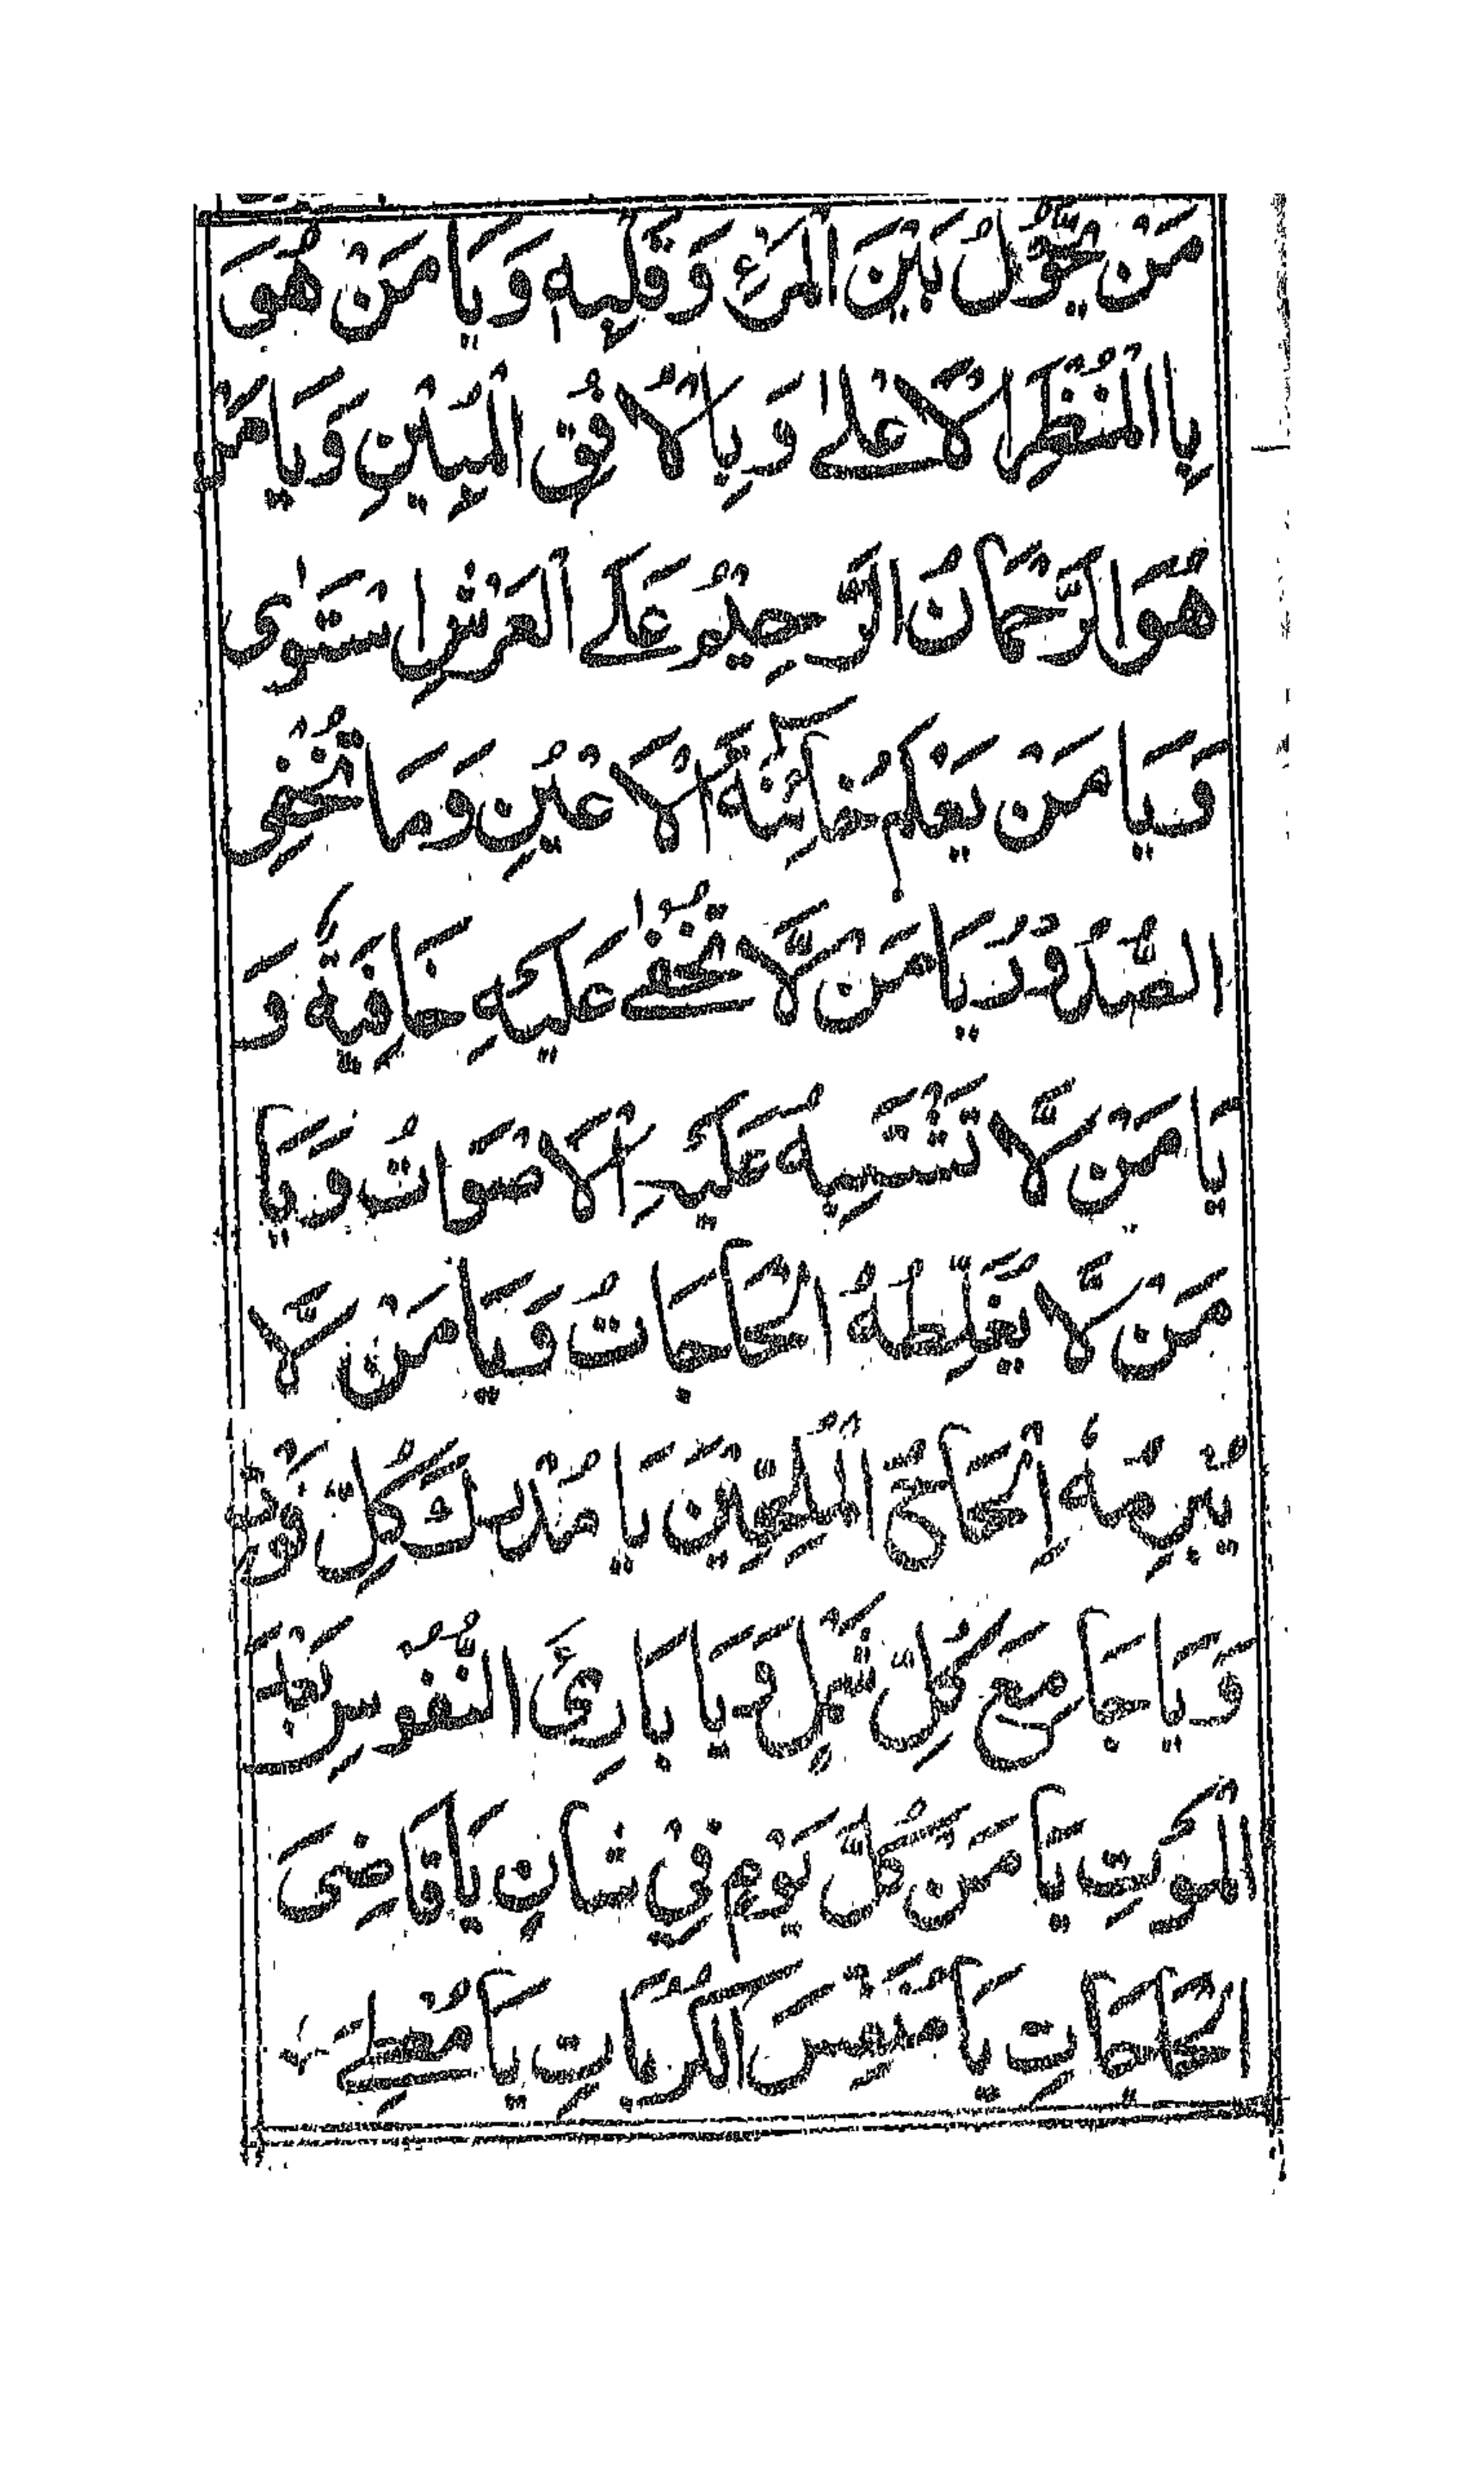 مَنْ يَّحُوْلُ بَيْنَ الْمَرْءِ وَ قَلْبِهٖ وَ يَا مَنْ هُوَ
بِالْمَنْظَرِ الْاَعْلٰے وَ بِالْاُفُقِ الْمُبِيْنِ وَ يَا مَنْ
هُوَ الرَّحْمَانُ الرَّحِيْمُ عَلَے الْعَرْشِ اسْتَوٰى
وَ يَا مَنْ يَعْلَمُ خَآئِنَةَ الْاَعْيُنِ وَ مَا تُخْفِى
الصُّدُوْرُ يَا مَنْ لَّا تَخْفٰے عَلَيْهِ خَافِيَةٌ وَ
يَا مَنْ لَّا تَشْتَبِهُ عَلَيْهِ الْاَصْوَاتُ وَ يَا
مَنْ لَّا يُغَلِّطُهُ الْحَاجَاتُ وَ يَا مَنْ لَّا
يُبْرِمُهٗ اِلْحَاحُ الْمُلِحِّيْنَ يَا مُدْرِكَ كُلِّ فَوْتٍ
وَ يَا جَامِعَ كُلِّ شَمْلٍ وَ يَا بَارِئَ النُّفُوْسِ بَعْدَ
الْمَوْتِ يَا مَنْ كُلَّ يَوْمٍ فِيْ شَانٍ يَا قَاضِىَ
الْحَاجَاتِ يَا مُنَفِّسَ الْكُرُبَاتِ يَا مُعْطِےَ